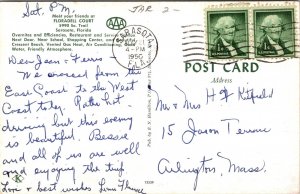 Sat, P.M.
JAR 2-
Meet your friends at
FLORASELL COURT
5990 So. Trail
Sarasota, Florida
Overnite and Efficiencies, Restaurant and Service
Next Door, Near School, Shopping Center, and
Crescent Beach. Vented Gas Heat, Air Conditioning,
Motor, Friendly Atmosphere.
AAA
SARASOTA
4-PM
FLA.
POST CARD
Address
Dear Jean & Ferris
We crossed from the
East Coast to the West
Coast today. Rather hot
driving but this evening
is beautiful. Bessie
and all of us are well
and enjoying the trip
Love & best wishes from
Mr & Mrs H
15 Jason Terrace
Arlington, Mass.